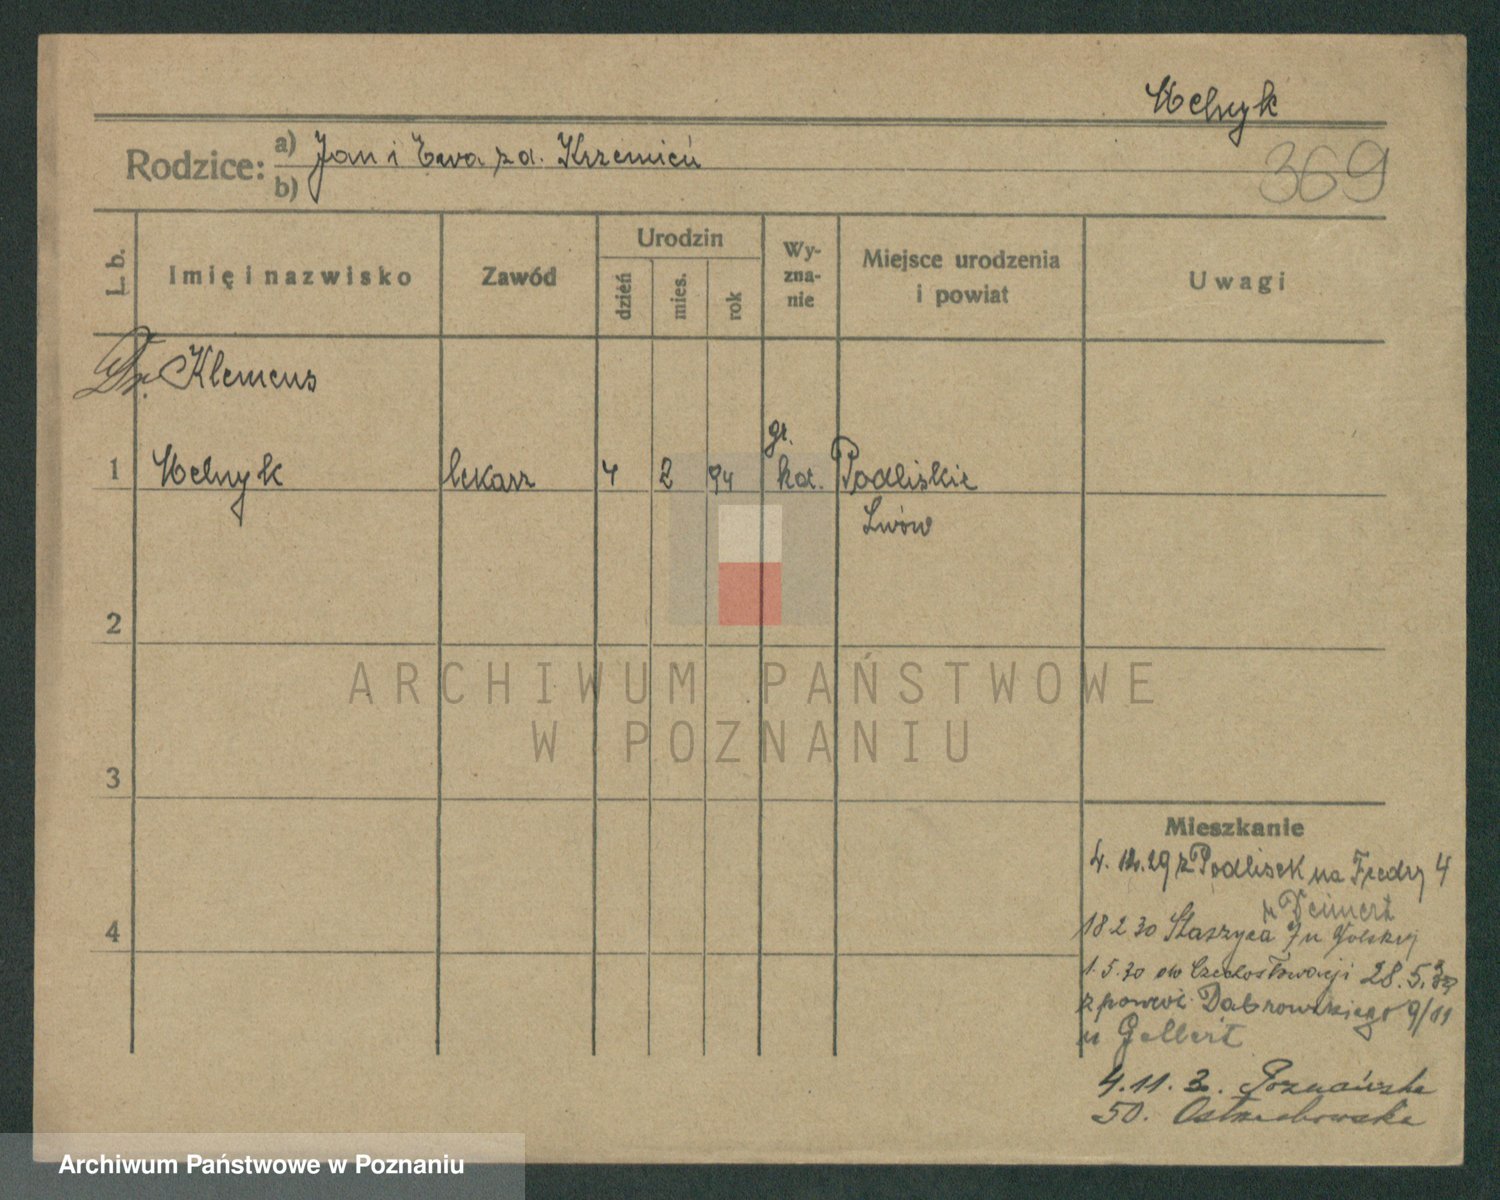 Melnyk
Rodzice: a) Jan i Ewa z d. Krzemień
b)
369
L. b.
Imię i nazwisko
Zawód
Urodzin
dzień
mies.
rok
Wy-
zna-
nie
Miejsce urodzenia
i powiat
Uwagi
Dr. Klemens
1 Melnyk lekarz 4 2 94 gr. kat. Podliskie
Lwów
2
3
4
Mieszkanie
4. 12. 29 z Podlisek na Fredry 4
u Deinert
18 2 30 Staszyca 7 u
1. 5. 30 do Czechosłowacji 28. 5. 30
z powrot. Dąbrowskiego 9/11
u Gellert
4. 11. 3. Poznańska
50. Ostrzebowska
ARCHIWUM PAŃSTWOWE
W POZNANIU
Archiwum Państwowe w Poznaniu